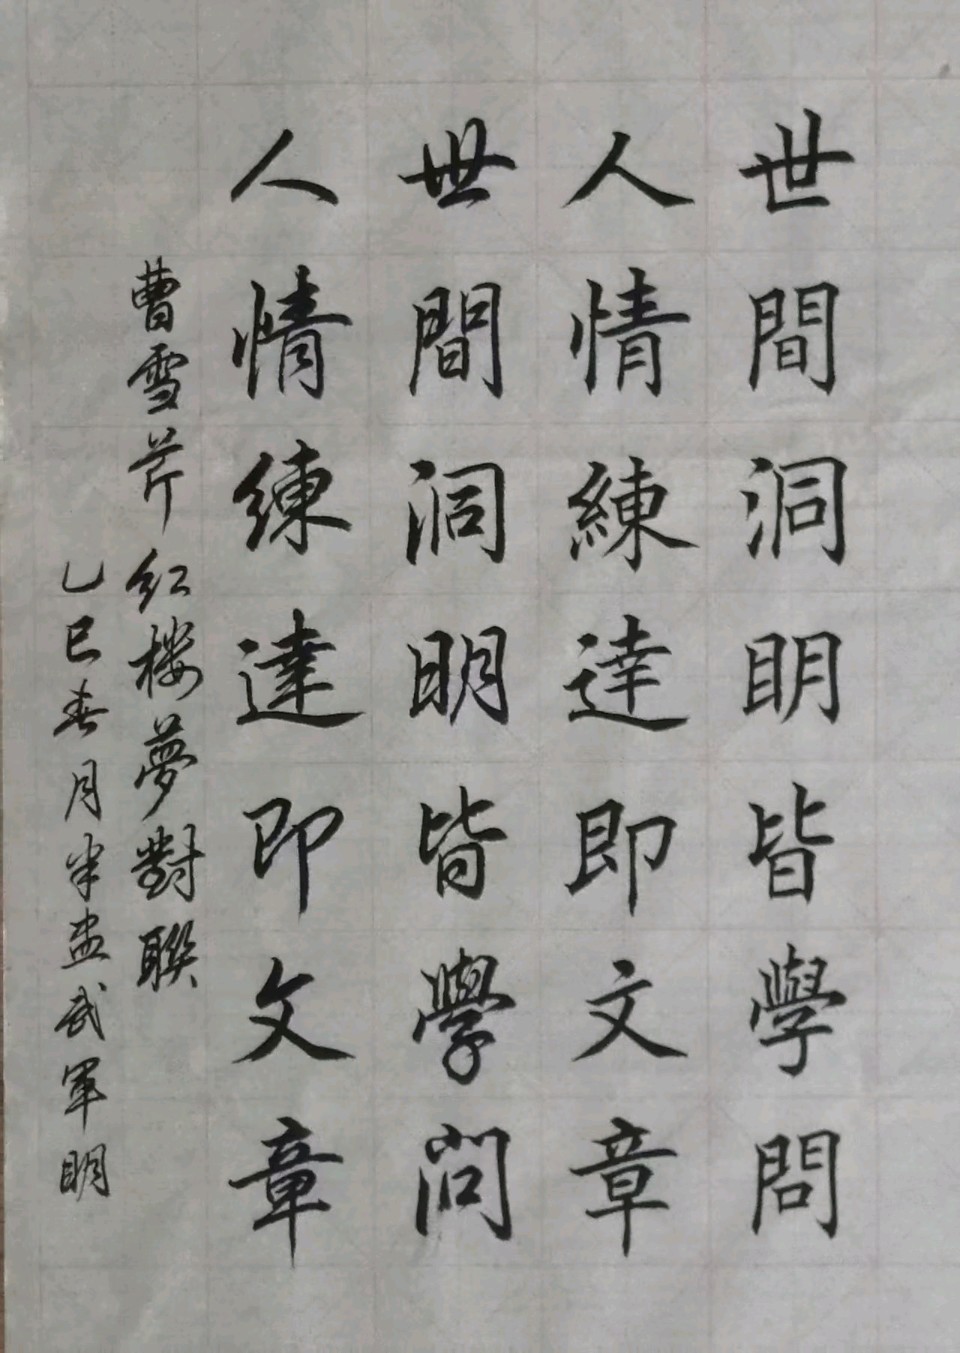 世間洞明皆學問
人情練達即文章
世間洞明皆學問
人情練達即文章
曹雪芹红楼夢對聯
乙巳春月半盂武軍明